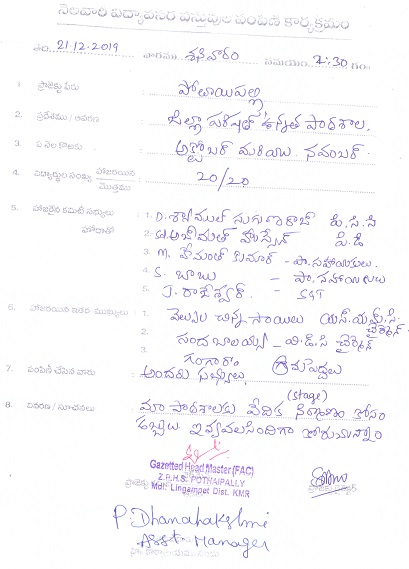 నెలవారి విద్యావసర వస్తువుల పంపిణి కార్యక్రమం
తేది 21.12.2019 వారము శనివారం సమయం 2:30 గం
1 ప్రాజెక్టు పేరు పోతాయిపల్లి
2. ప్రదేశము / ఆవరణ జిల్లా పరిషత్ ఉన్నత పాఠశాల.
3. ఏ నెల కొరకు అక్టోబర్ మరియు నవంబర్.
4. విద్యార్థుల సంఖ్య హాజరయిన 20/20
మొత్తము
5. హాజరైన కమిటీ సభ్యులు 1. D. సుగుణాకర్ పి.సి.సి
హోదాతో 2. హుస్సేన్ పి.డి
3. M. హేమంత్ కుమార్ - పా.సహాయకులు.
4. K. బాబు - పా.సహాయకులు
5. J. రాజేశ్వర్. - SGT
6. హాజరయిన ఇతర ముఖ్యులు 1. చిన్న సాయిలు యస్.యమ్.సి. చైర్మెన్
2. బాలయ్య - వి.డి.సి చైర్మెన్
3. గంగారాం గ్రామపెద్దలు
7. పంపిణి చేసిన వారు అందరు సభ్యులు
8. వివరణ / సూచనలు మా పాఠశాలకు వేదిక (Stage) నిర్మాణం కోసం
డబ్బులు ఇవ్వవలసిందిగా కోరుచున్నాం
Gazetted Head Master (FAC)
Z.P.H.S. POTHAIPALLY
Mdl: Lingampet Dist. KMR
P. Dhanalakshmi
Asst Manager